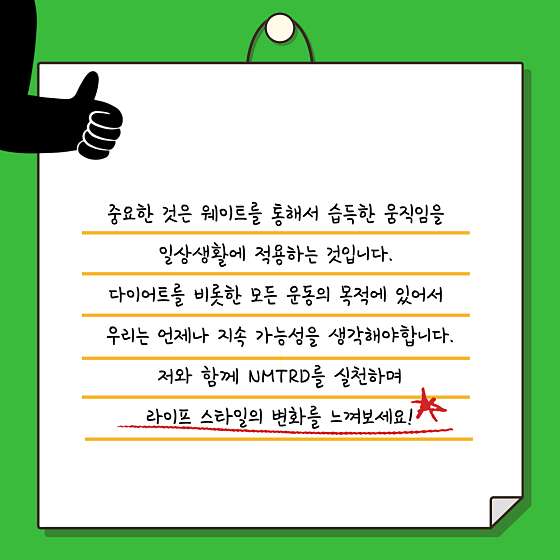 중요한 것은 웨이트를 통해서 습득한 움직임을
일상생활에 적용하는 것입니다.
다이어트를 비롯한 모든 운동의 목적에 있어서
우리는 언제나 지속 가능성을 생각해야합니다.
저와 함께 NMTRD를 실천하며
라이프 스타일의 변화를 느껴보세요!